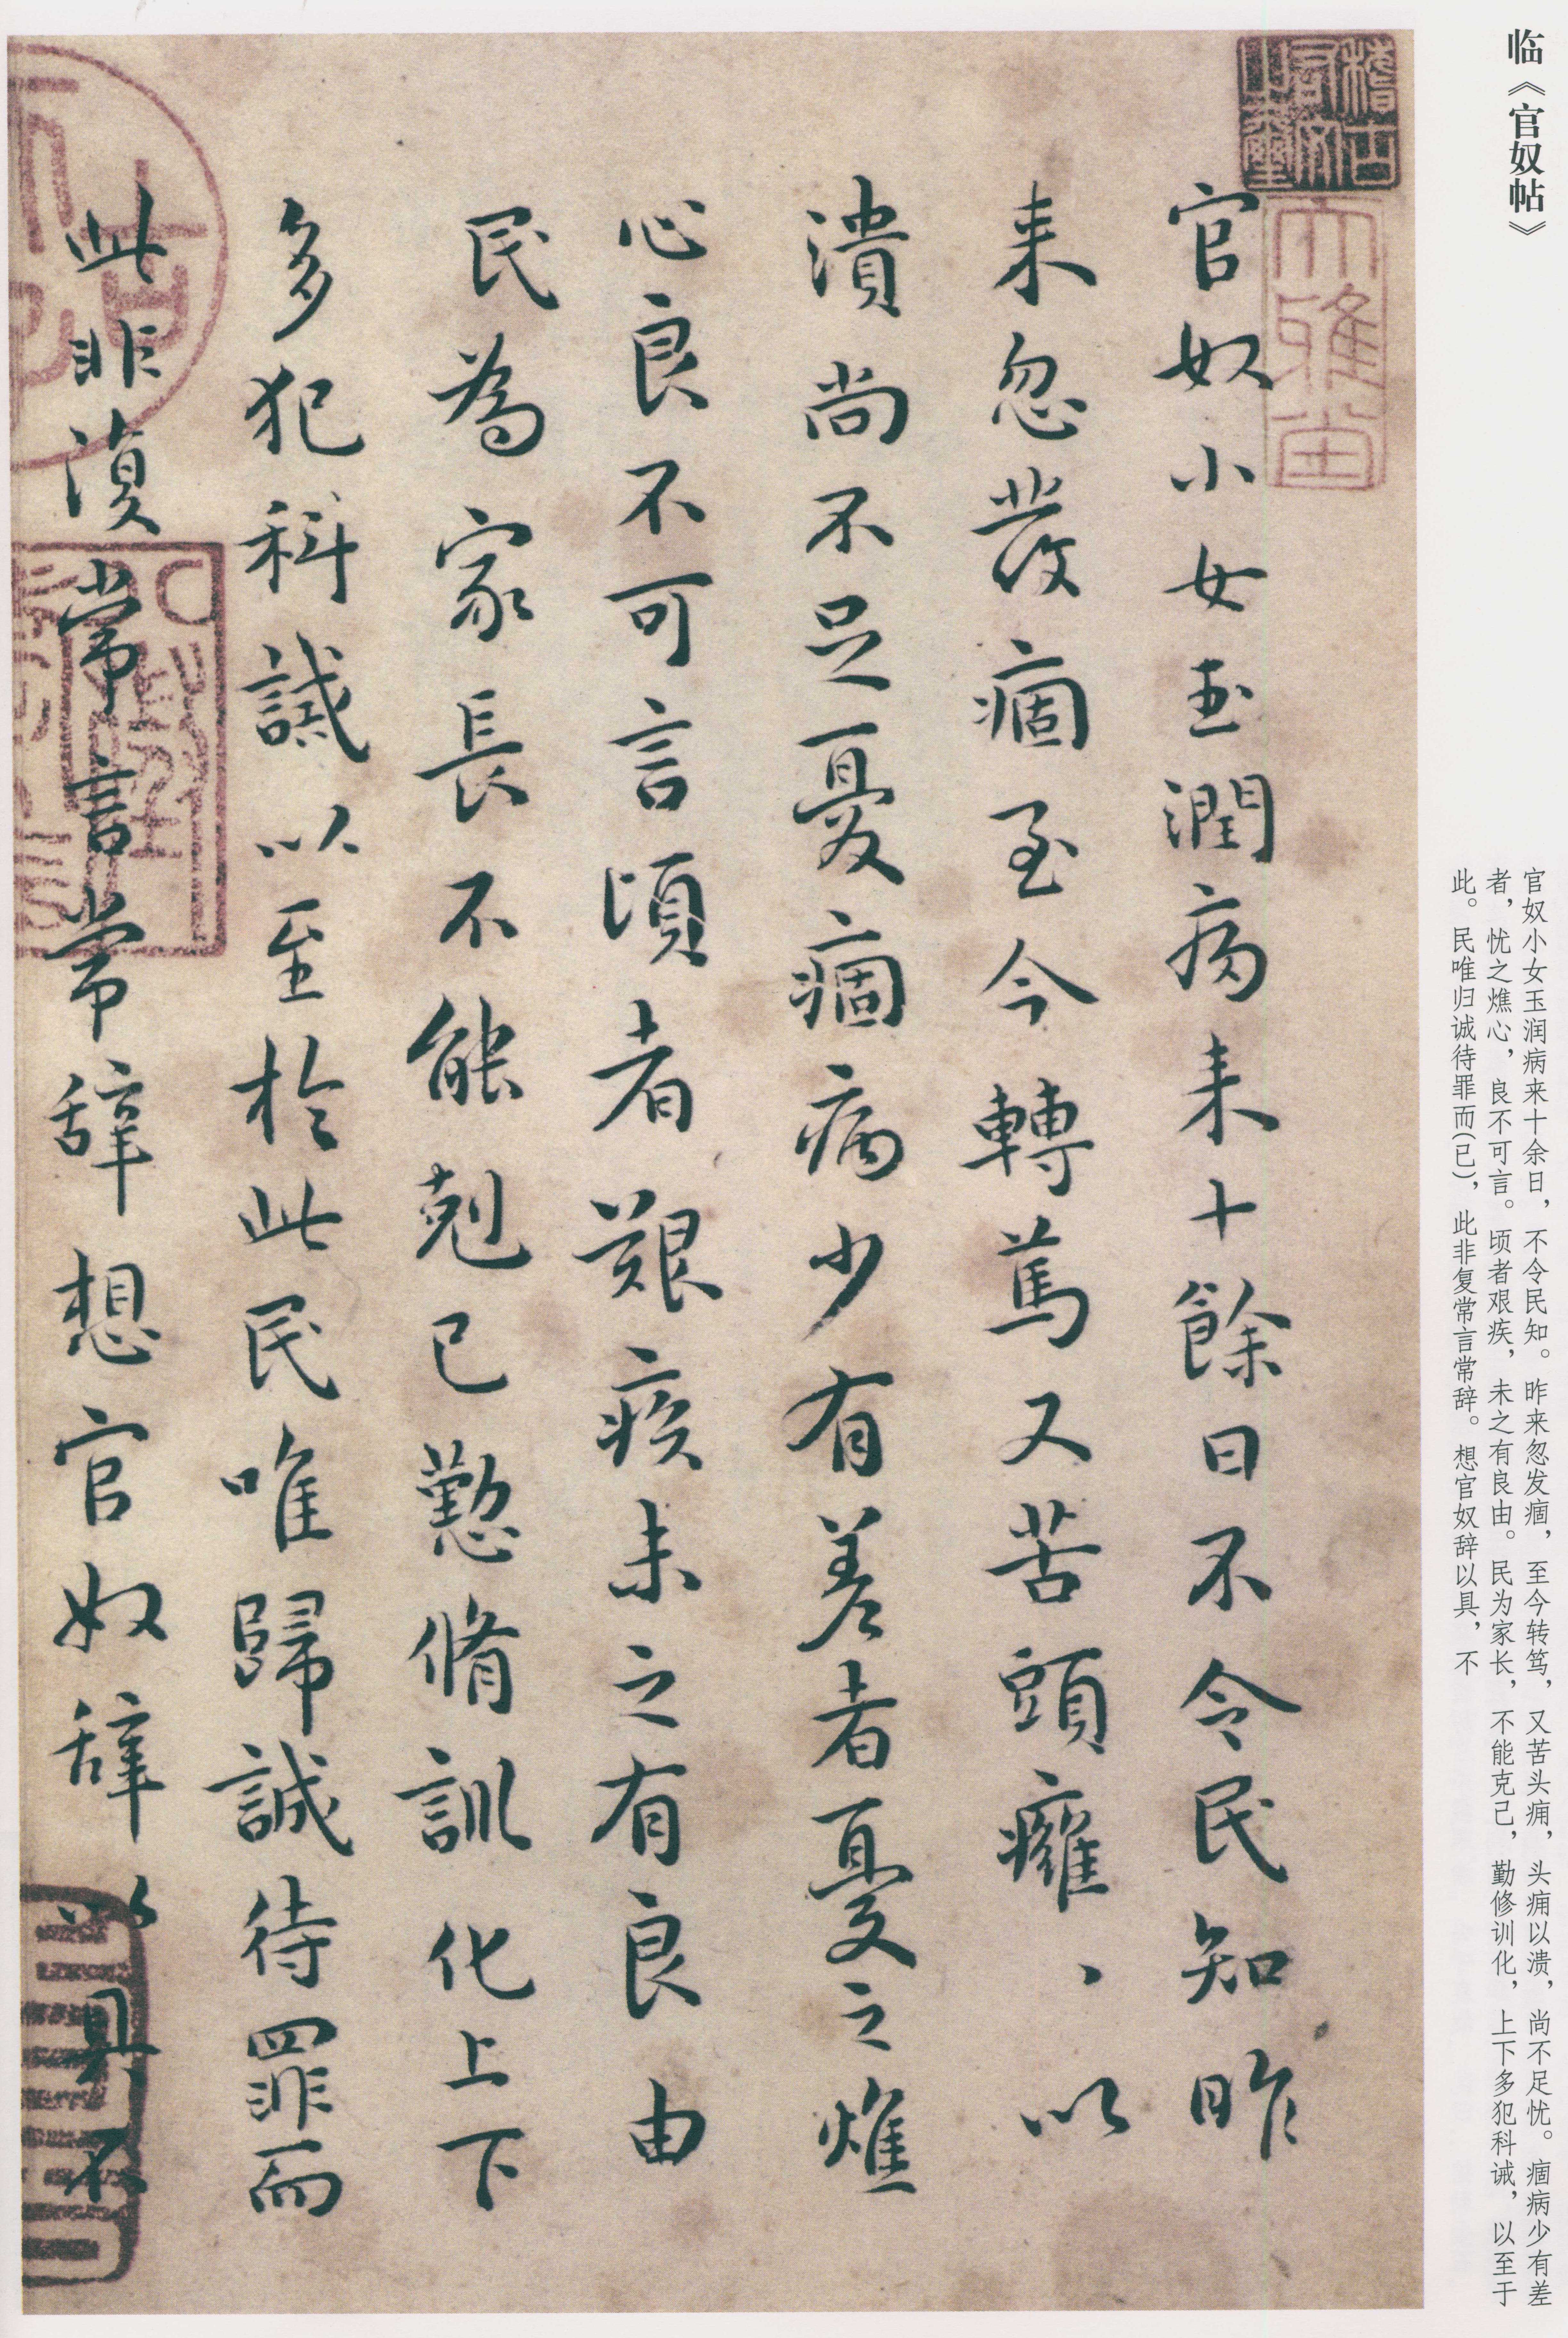 临《官奴帖》
官奴小女玉润病来十余日，不令民知。昨来忽发痼，至今转笃，又苦头痈，头痈以溃，尚不足忧。痼病少有差
者，忧之燋心，良不可言。顷者艰疾，未之有良由。民为家长，不能克己，勤修训化，上下多犯科诫，以至于
此。民唯归诚待罪而(已)，此非复常言常辞。想官奴辞以具，不
官奴小女玉潤病来十餘日不令民知昨
来忽發痼至今轉篤又苦頭癰、以
潰尚不足憂痼病少有差者憂之燋
心良不可言頃者艱疾未之有良由
民為家長不能剋己懃脩訓化上下
多犯科誡以至於此民唯歸誠待罪而
此非復常言常辭想官奴辭以具不
大雅堂